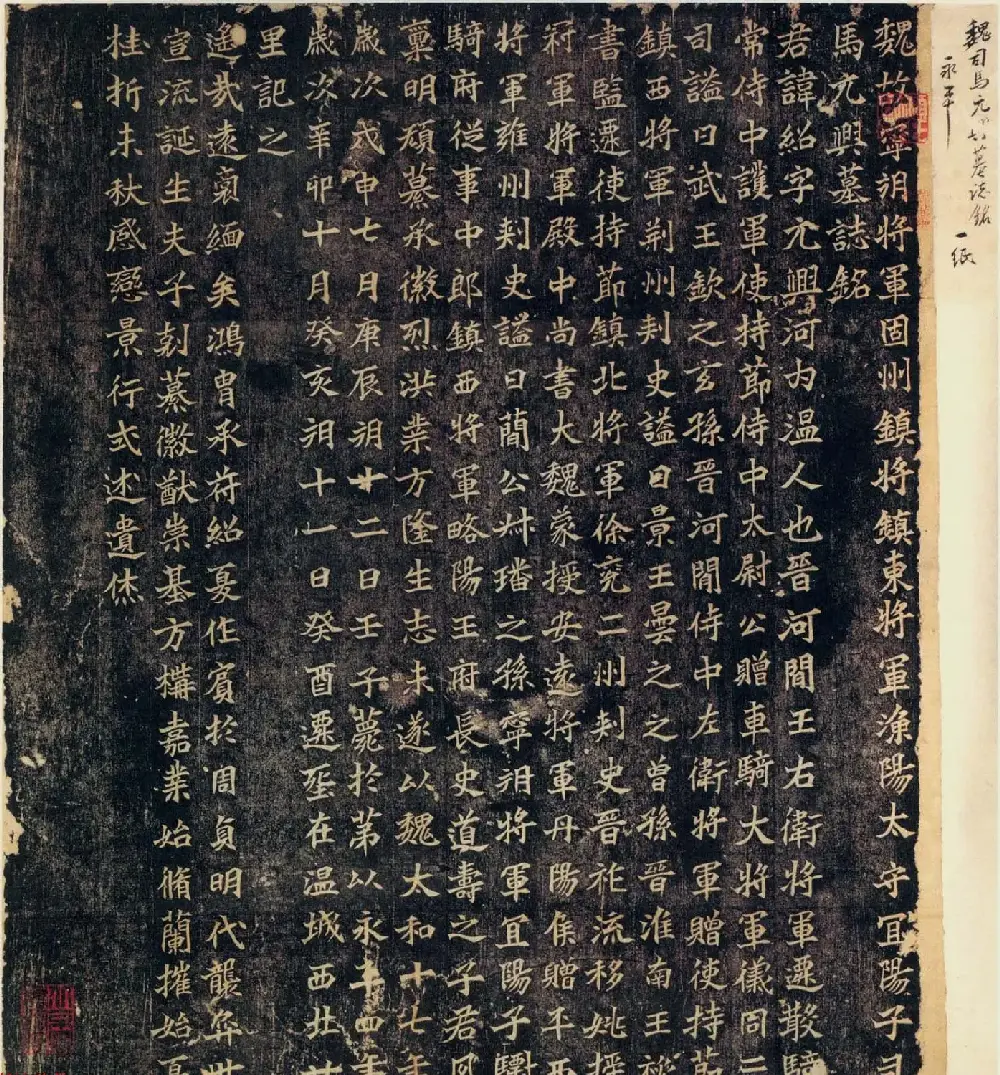 魏司馬元興墓誌銘 一紙
永平
魏故寧朔將軍固州鎮將鎮東將軍漁陽太守宜陽子司
馬元興墓誌銘
君諱紹字元興河內温人也晉河間王右衛將軍遷散騎
常侍中護軍使持節侍中太尉公贈車騎大將軍儀同三
司謚曰武王欽之玄孫晉河間侍中左衛將軍贈使持節
鎮西將軍荊州刺史謚曰景王曇之之曾孫晉淮南王祕
書監遷使持節鎮北將軍徐兗二州刺史晉祚流移姚授
冠軍將軍殿中尚書大魏蒙授安遠將軍丹陽侯贈平西
將軍雍州刺史謚曰簡公叔璠之孫寧朔將軍宜陽子驃
騎府從事中郎鎮西將軍略陽王府長史道壽之子君
稟明頎慕承徽烈洪業方隆生志未遂以魏太和十七年
歲次戊申七月庚辰朔廿二日壬子薨於第以永平四年
歲次辛卯十月癸亥朔十一日癸酉遷塋在温城西北廿
里記之
遙哉遠裔緬矣鴻胄承符紹夏作賓於周貞明代襲弈世
宣流誕生夫子剋纂徽猷崇基方構嘉業始脩蘭摧始夏
桂折未秋感戀景行式述遺烋